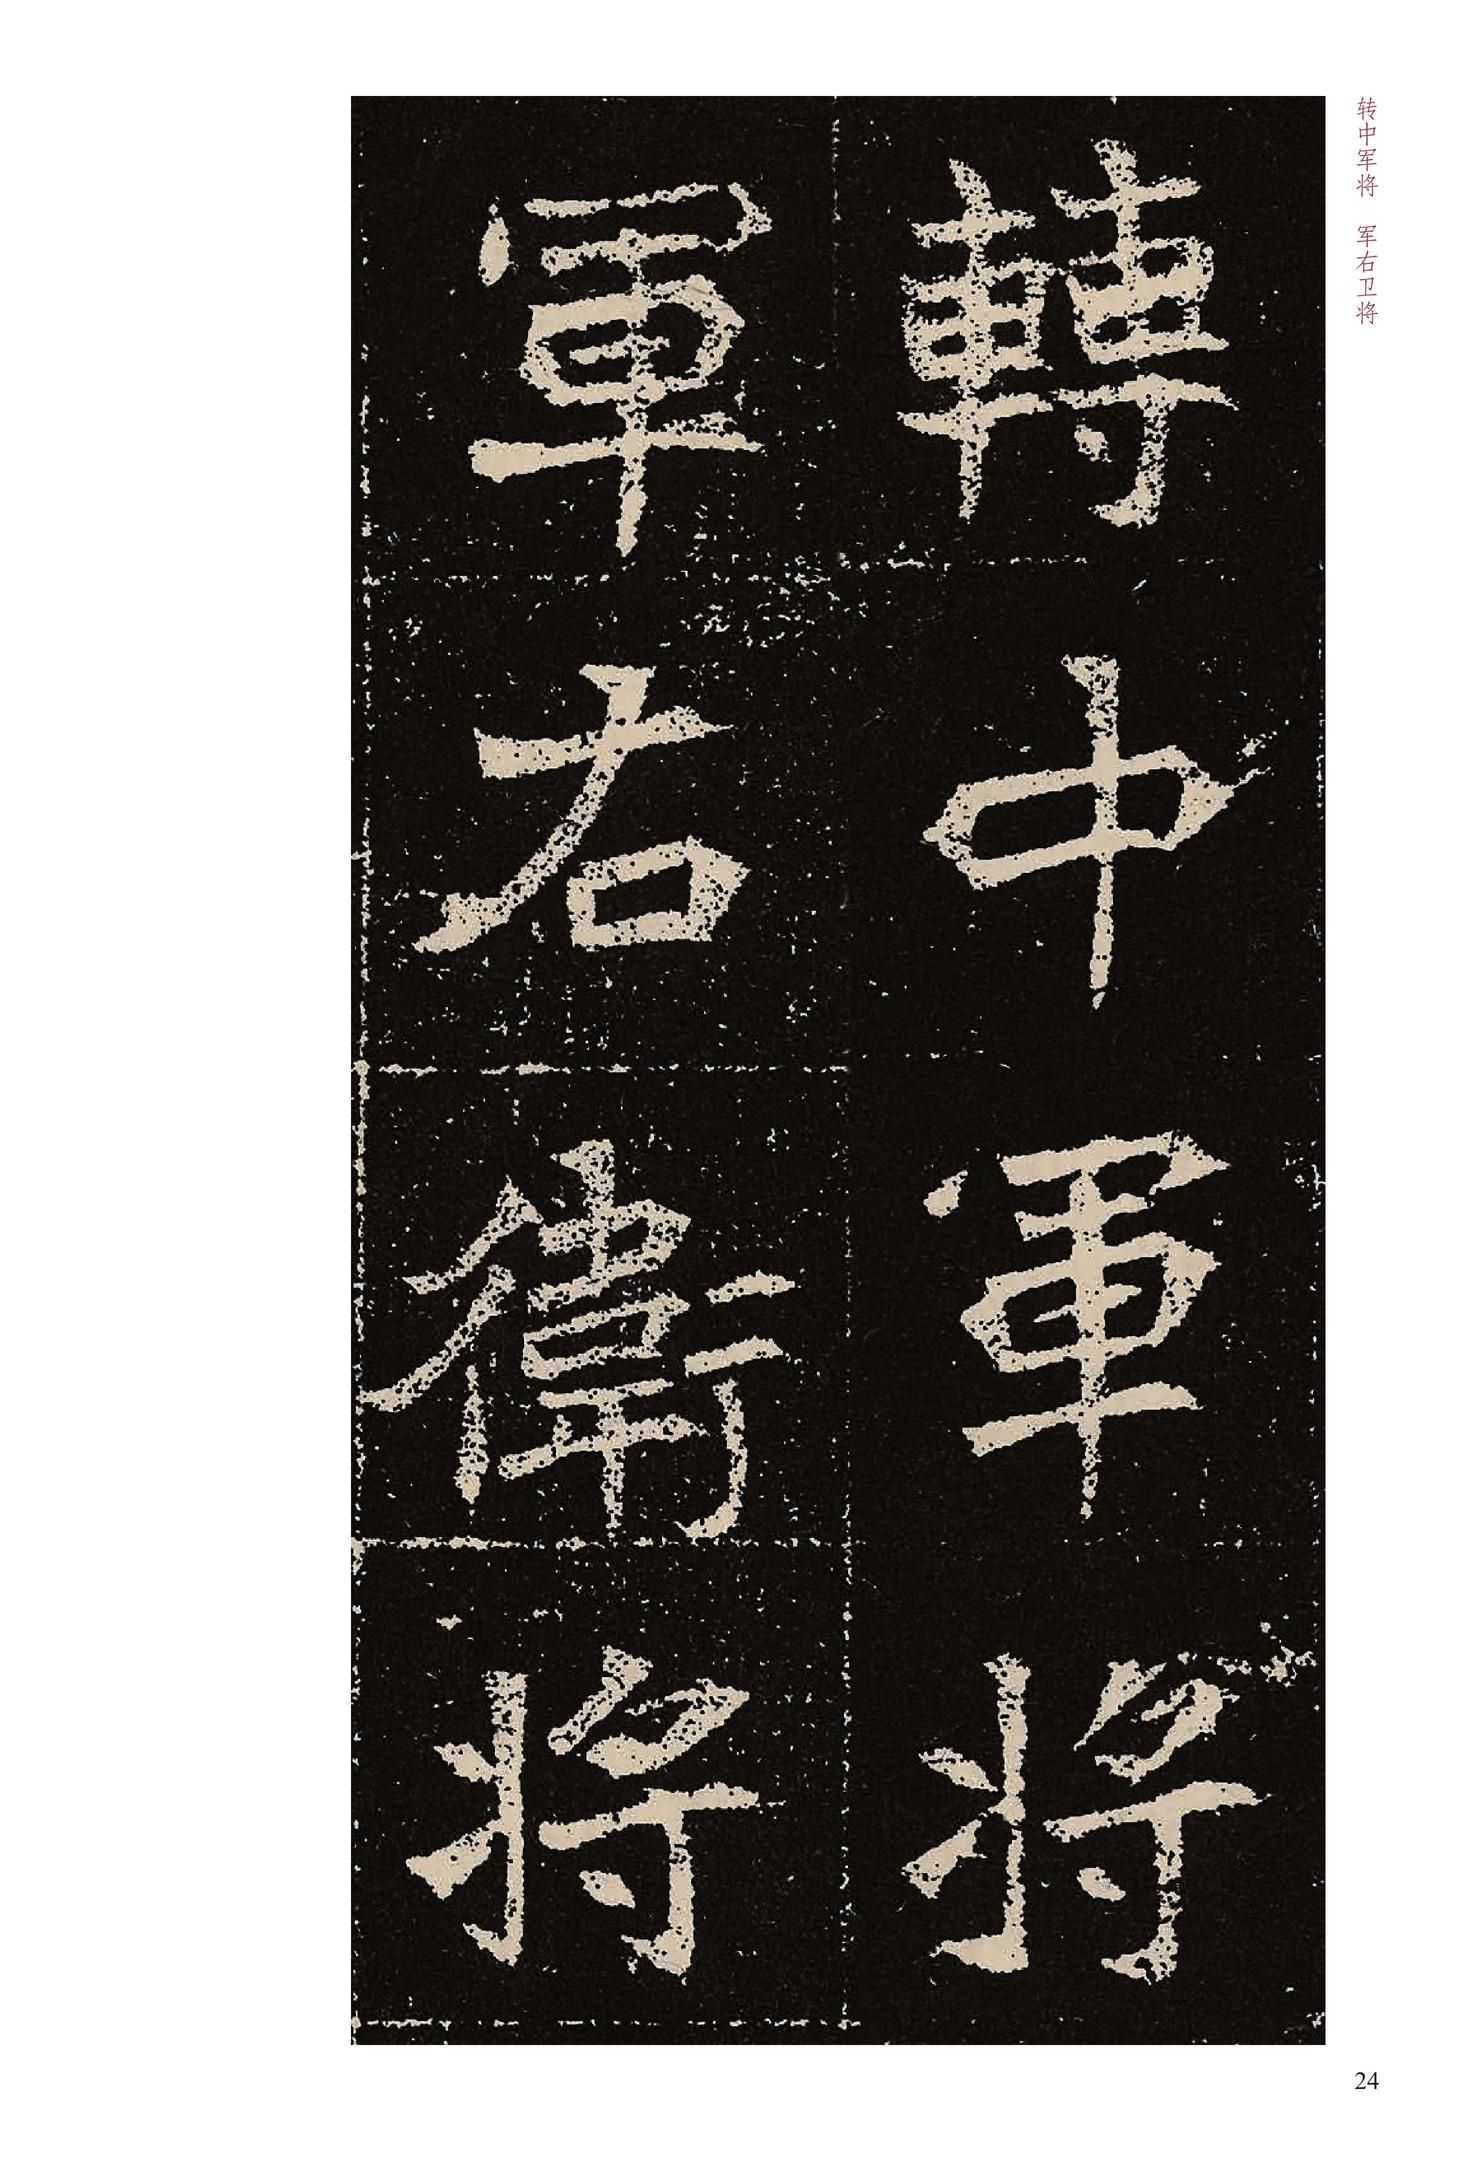 转中军将　军右卫将
轉中軍將
軍右衛將
24